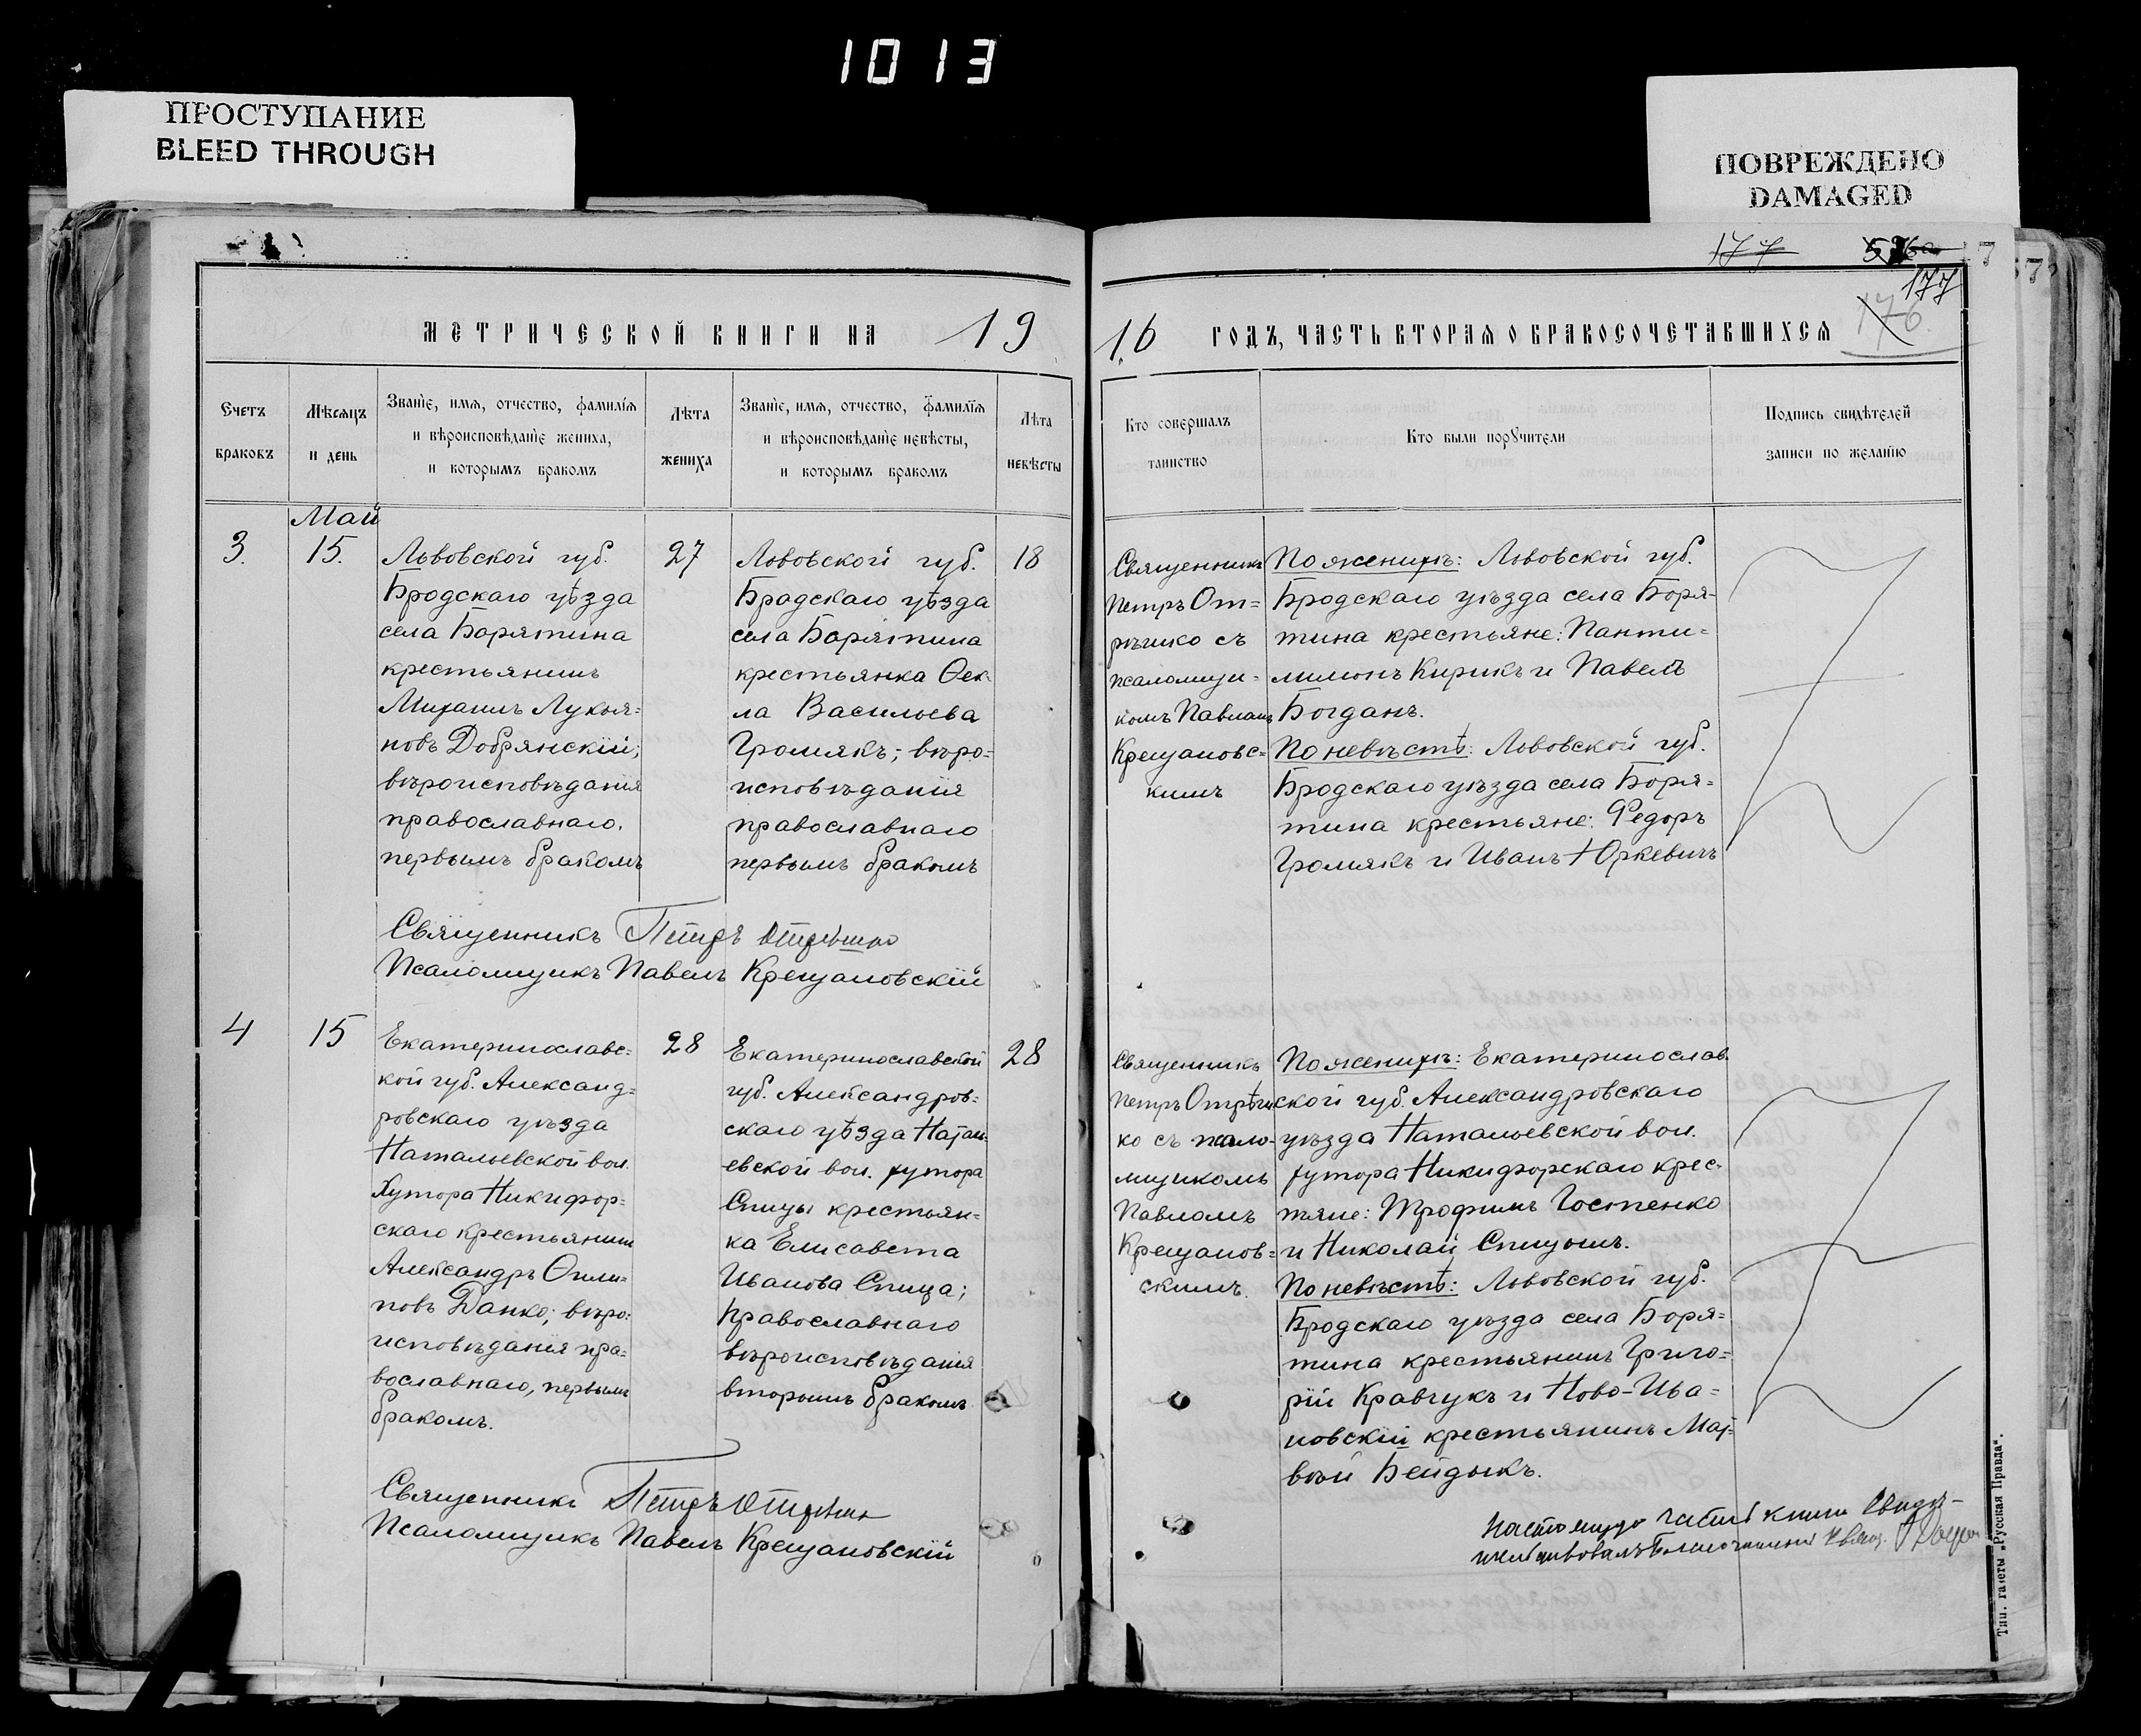 1013
ПРОСТУПАНИЕ
BLEED THROUGH
ПОВРЕЖДЕНО
DAMAGED
177
177
176.
МЕТРИЧЕСКОЙ КНИГИ НА 19
16 ГОДЪ, ЧАСТЬ ВТОРАЯ О БРАКОСОЧЕТАВШИХСЯ
Счетъ
браковъ
Мѣсяцъ
и день
Званіе, имя, отчество, фамилія
и вѣроисповѣданіе жениха,
и которымъ бракомъ
Лѣта
жениха
Званіе, имя, отчество, фамилія
и вѣроисповѣданіе невѣсты,
и которымъ бракомъ
Лѣта
невѣсты
Кто совершалъ
таинство
Кто были поручители
Подпись свидѣтелей
записи по желанію
3.
Май
15.
Львовской губ.
Бродскаго уѣзда
села Борятина
крестьянинъ
Михаилъ Лукья=
новъ Добрянскій;
вѣроисповѣданія
православнаго,
первымъ бракомъ
27
Львовской губ.
Бродскаго уѣзда
села Борятина
крестьянка Ѳек-
ла Васильева
Громякъ; вѣро=
исповѣданія
православнаго
первымъ бракомъ
18
Священникъ
Петръ От=
рѣшко съ
псаломщи=
комъ Павломъ
Крещановс=
кимъ
По женихѣ: Львовской губ.
Бродскаго уѣзда села Боря-
тина крестьяне: Панти=
лимонъ Кирикъ и Павелъ
Богданъ.
По невѣстѣ: Львовской губ.
Бродскаго уѣзда села Боря=
тина крестьяне: Федоръ
Громякъ и Иванъ Юркевичъ
Священникъ Петръ Отрѣшко
Псаломщикъ Павелъ Крещановскій
4
15
Екатеринославс=
кой губ. Александ=
ровскаго уѣзда
Натальевской вол.
Хутора Никифор=
скаго крестьянинъ
Александръ
новъ Данко; вѣро=
исповѣданія пра=
вославнаго, первымъ
бракомъ.
28
Екатеринославской
губ. Александров=
скаго уѣзда Натал-
евской вол. хутора
Спицы крестьян=
ка Елисавета
Иванова Спица;
православнаго
вѣроисповѣданія
вторымъ бракомъ
28
Священникъ
Петръ Отрѣш
ко съ псало-
мщикомъ
Павломъ
Крещанов=
скимъ.
По женихѣ: Екатеринослав
ской губ. Александровскаго
уѣзда Натальевской вол.
хутора Никифорскаго крес-
тяне: Трофимъ Гостенко
и Николай Спицынъ.
По невѣстѣ: Львовской губ.
Бродскаго уѣзда села Боря=
тина крестьянинъ Григо=
рій Кравчукъ и Ново-Ива=
новскій крестьянинъ Мат-
вѣй Бейдыкъ.
Священникъ Петръ Отрѣшко
Псаломщикъ Павелъ Крещановскій
части книги Свидѣ-
Тип. газеты „Русская Правда“.